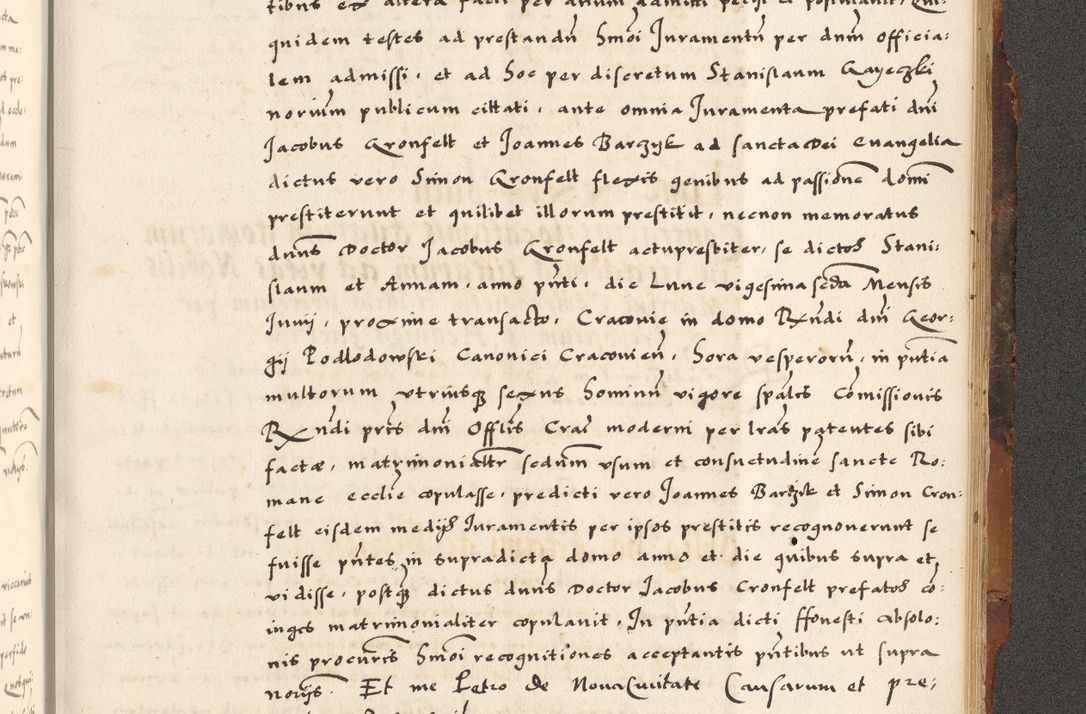 quidem testes ad prestandū Hmōi Juramentū per dnm̄ officia:
lem admissi, et ad Hoc per discretum Stanislaum Gayeczki
noriūm publicum cittati, ante omnia Juramenta prefati dnī
Jacobus Gronfelt et Joannes Barczyk ad sancta Dei Evangelia
dictus vero Simon Gronfelt flexis genibus ad passionē domī
prestiterunt et quilibet illorum prestitit, necnon memoratus
dnūs Doctor Jacobus Gronfelt actu prestiter, se dictos Stani:
slaum et Annam, anno pn̄ti, die Lune vigesima secda Mensis
Junij, proxime transacto, Cracovie in domo Rndi dnī Geor:
gij Podlodowski Canonici Cracovien̄, Hora vesperorū, in pn̄tia
multorum utriusq sexus Hominū vigore spālis Comissionis
Rndi prīs dnī Offlīs Crac̄ moderni per lrās patentes sibi
factæ, matrimonialtr̄ secdum̄ usum et consuetudinē sancte Ro:
mane ecclīe copulasse, predicti vero Joannes Barczyk et Simon Cron:
felt eisdem medijs Iuramentis per ipsos prestitis recognoverunt se
fuisse pn̄tes in supradicta domo anno et die quibus supra et
vidisse, postq̄ dictus dnūs Doctor Jacobus Cronfelt prefatos cō:
iuges matrimonialiter copulavit, In pn̄tia dicti Honesti Absolo:
nis procurīs Hmōi recognitiones acceptantis pn̄tibus ut supra
norijs. Et me Petro de Nova Civitate Causarum et pre: